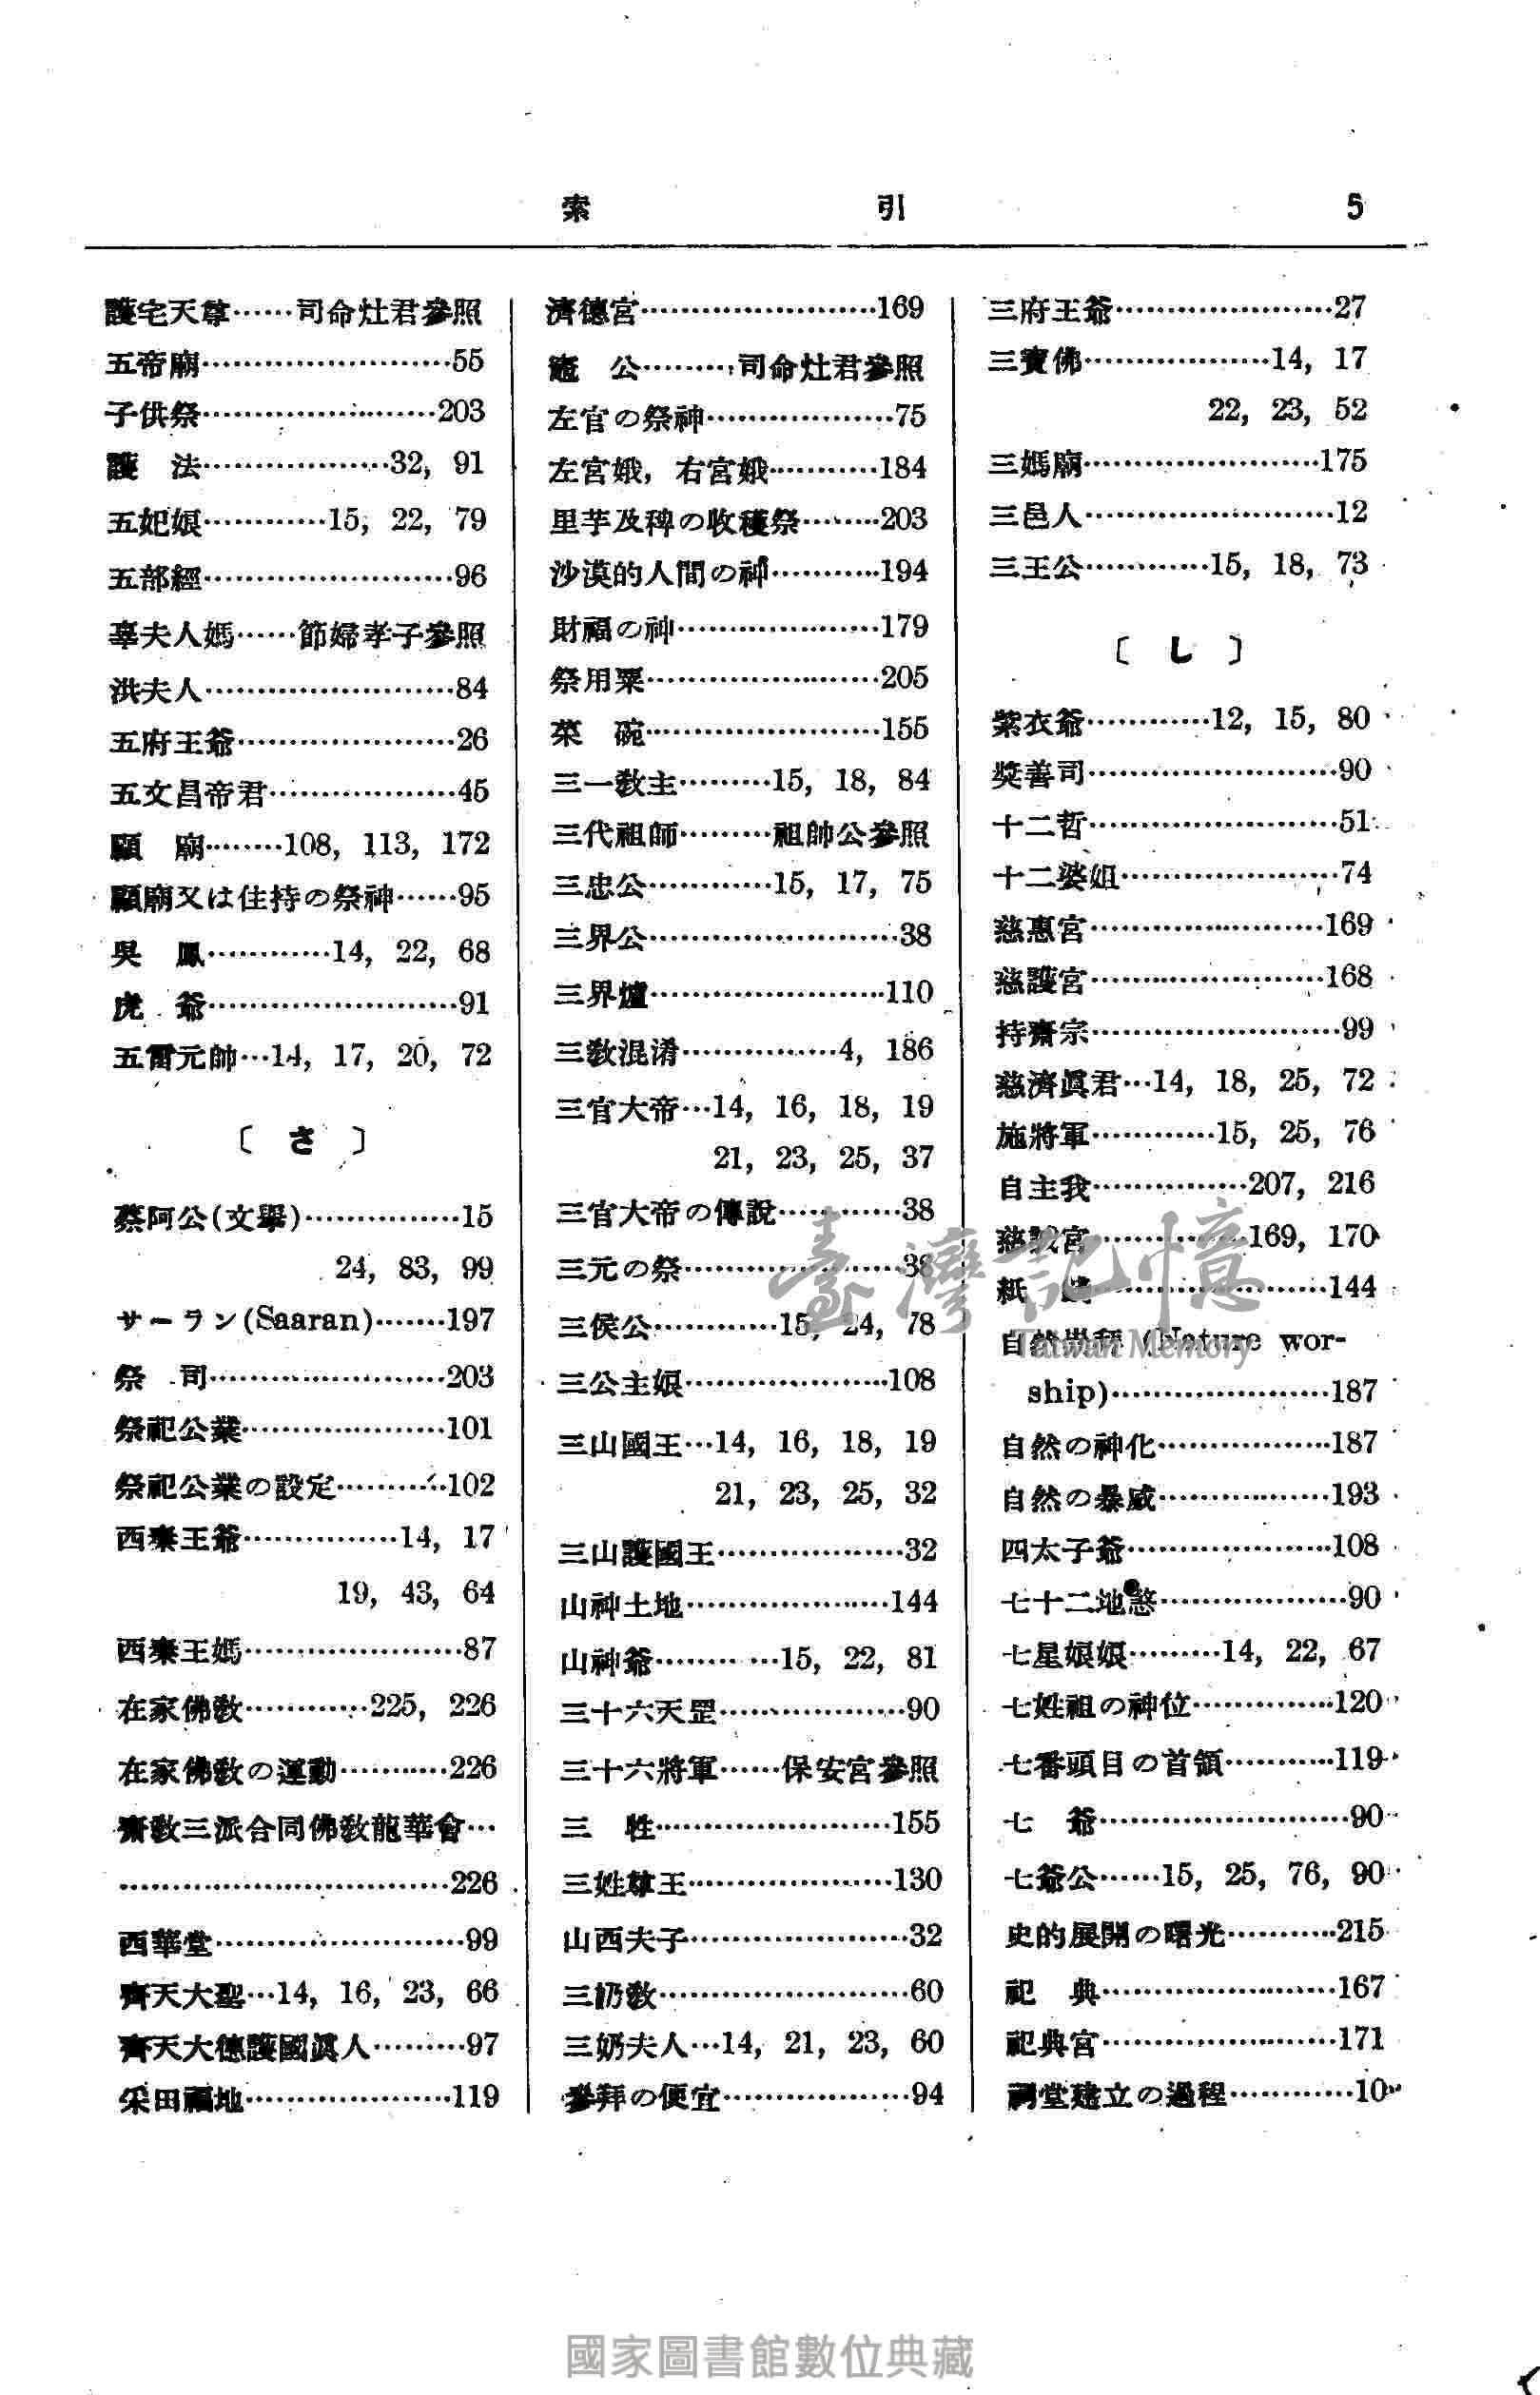 索引 5
護宅天尊……司命灶君參照
五帝廟……………………55
子供祭……………………203
護　法………………32, 91
五妃娘…………15, 22, 79
五部經……………………96
辜夫人媽……節婦孝子參照
洪夫人……………………84
五府王爺…………………26
五文昌帝君………………45
顯　廟………108, 113, 172
顯廟又は住持の祭神……95
吳　鳳…………14, 22, 68
虎　爺……………………91
五雷元帥…14, 17, 20, 72
〔さ〕
蔡阿公(文擧)……………15
24, 83, 99
サーラン(Saaran)………197
祭　司……………………203
祭祀公業…………………101
祭祀公業の設定…………102
西秦王爺……………14, 17
19, 43, 64
西秦王媽…………………87
在家佛敎…………225, 226
在家佛敎の運動…………226
齋敎三派合同佛敎龍華會…
……………………………226
西華堂……………………99
齊天大聖…14, 16, 23, 66
齊天大德護國眞人………97
采田福地…………………119
濟德宮……………………169
竈　公………司命灶君參照
左官の祭神………………75
左宮娥, 右宮娥…………184
里芋及稗の收穫祭………203
沙漠的人間の神…………194
財福の神…………………179
祭用粟……………………205
菜　碗……………………155
三一敎主………15, 18, 84
三代祖師………祖師公參照
三忠公…………15, 17, 75
三界公……………………38
三界爐……………………110
三敎混淆……………4, 186
三官大帝…14, 16, 18, 19
21, 23, 25, 37
三官大帝の傳說…………38
三元の祭…………………38
三侯公…………15, 24, 78
三公主娘…………………108
三山國王…14, 16, 18, 19
21, 23, 25, 32
三山護國王………………32
山神土地…………………144
山神爺…………15, 22, 81
三十六天罡………………90
三十六將軍……保安宮參照
三　牲……………………155
三姓尊王…………………130
山西夫子…………………32
三奶敎……………………60
三奶夫人…14, 21, 23, 60
參拜の便宜………………94
三府王爺…………………27
三寶佛………………14, 17
22, 23, 52
三媽廟……………………175
三邑人……………………12
三王公…………15, 18, 73
〔し〕
紫衣爺…………12, 15, 80
奬善司……………………90
十二哲……………………51
十二婆姐…………………74
慈惠宮……………………169
慈護宮……………………168
持齋宗……………………99
慈濟眞君…14, 18, 25, 72
施將軍…………15, 25, 76
自主我……………207, 216
慈諴宮……………169, 170
紙　……………………144
自然崇拜 (Nature wor-
ship)……………………187
自然の神化………………187
自然の暴威………………193
四太子爺…………………108
七十二地煞………………90
七星娘娘………14, 22, 67
七姓祖の神位……………120
七番頭目の首領…………119
七　爺……………………90
七爺公……15, 25, 76, 90
史的展開の曙光…………215
祀　典……………………167
祀典宮……………………171
祠堂建立の過程…………10
臺灣記憶
Taiwan Memory
國家圖書館數位典藏